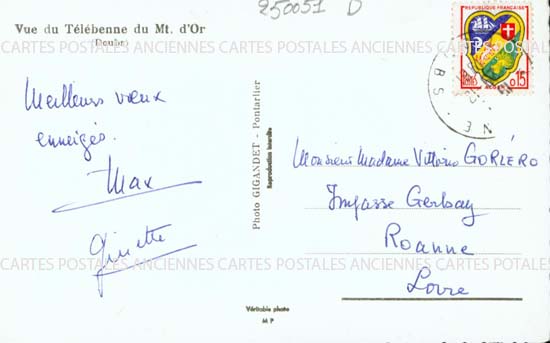 250051 D
Vue du Télébenne du Mt. d'Or
(Doubs)
REPUBLIQUE FRANÇAISE
0,15
POSTES
CARTES POSTALES ANCIENNES CARTES POSTALES ANCIENNES CARTES POSTALES
Meilleurs vœux
enneigés.
Max
Ginette
Photo GIGANDET - Pontarlier
Reproduction interdite
Monsieur Madame Vittorio GORLÉRO
Impasse Gerbay
Roanne
Loire
CARTES POSTALES ANCIENNES CARTES POSTALES ANCIENNES CARTES POSTALES
Véritable photo
M P